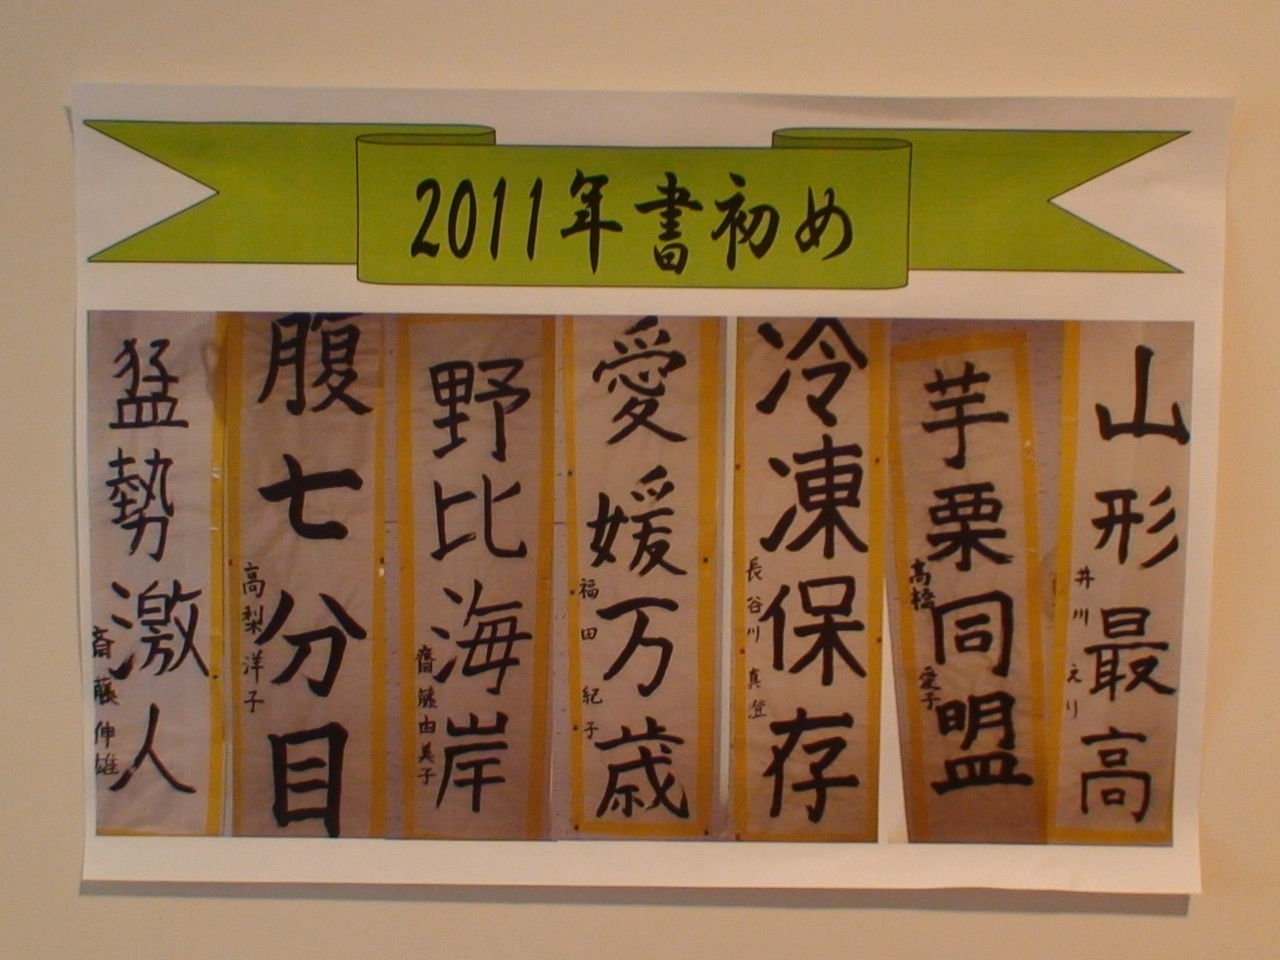 2011年書初め
山形最高
井川えり
芋栗同盟
高橋愛子
冷凍保存
長谷川真登
愛媛万歳
福田紀子
野比海岸
齋藤由美子
腹七分目
高梨洋子
猛勢激人
斎藤伸雄